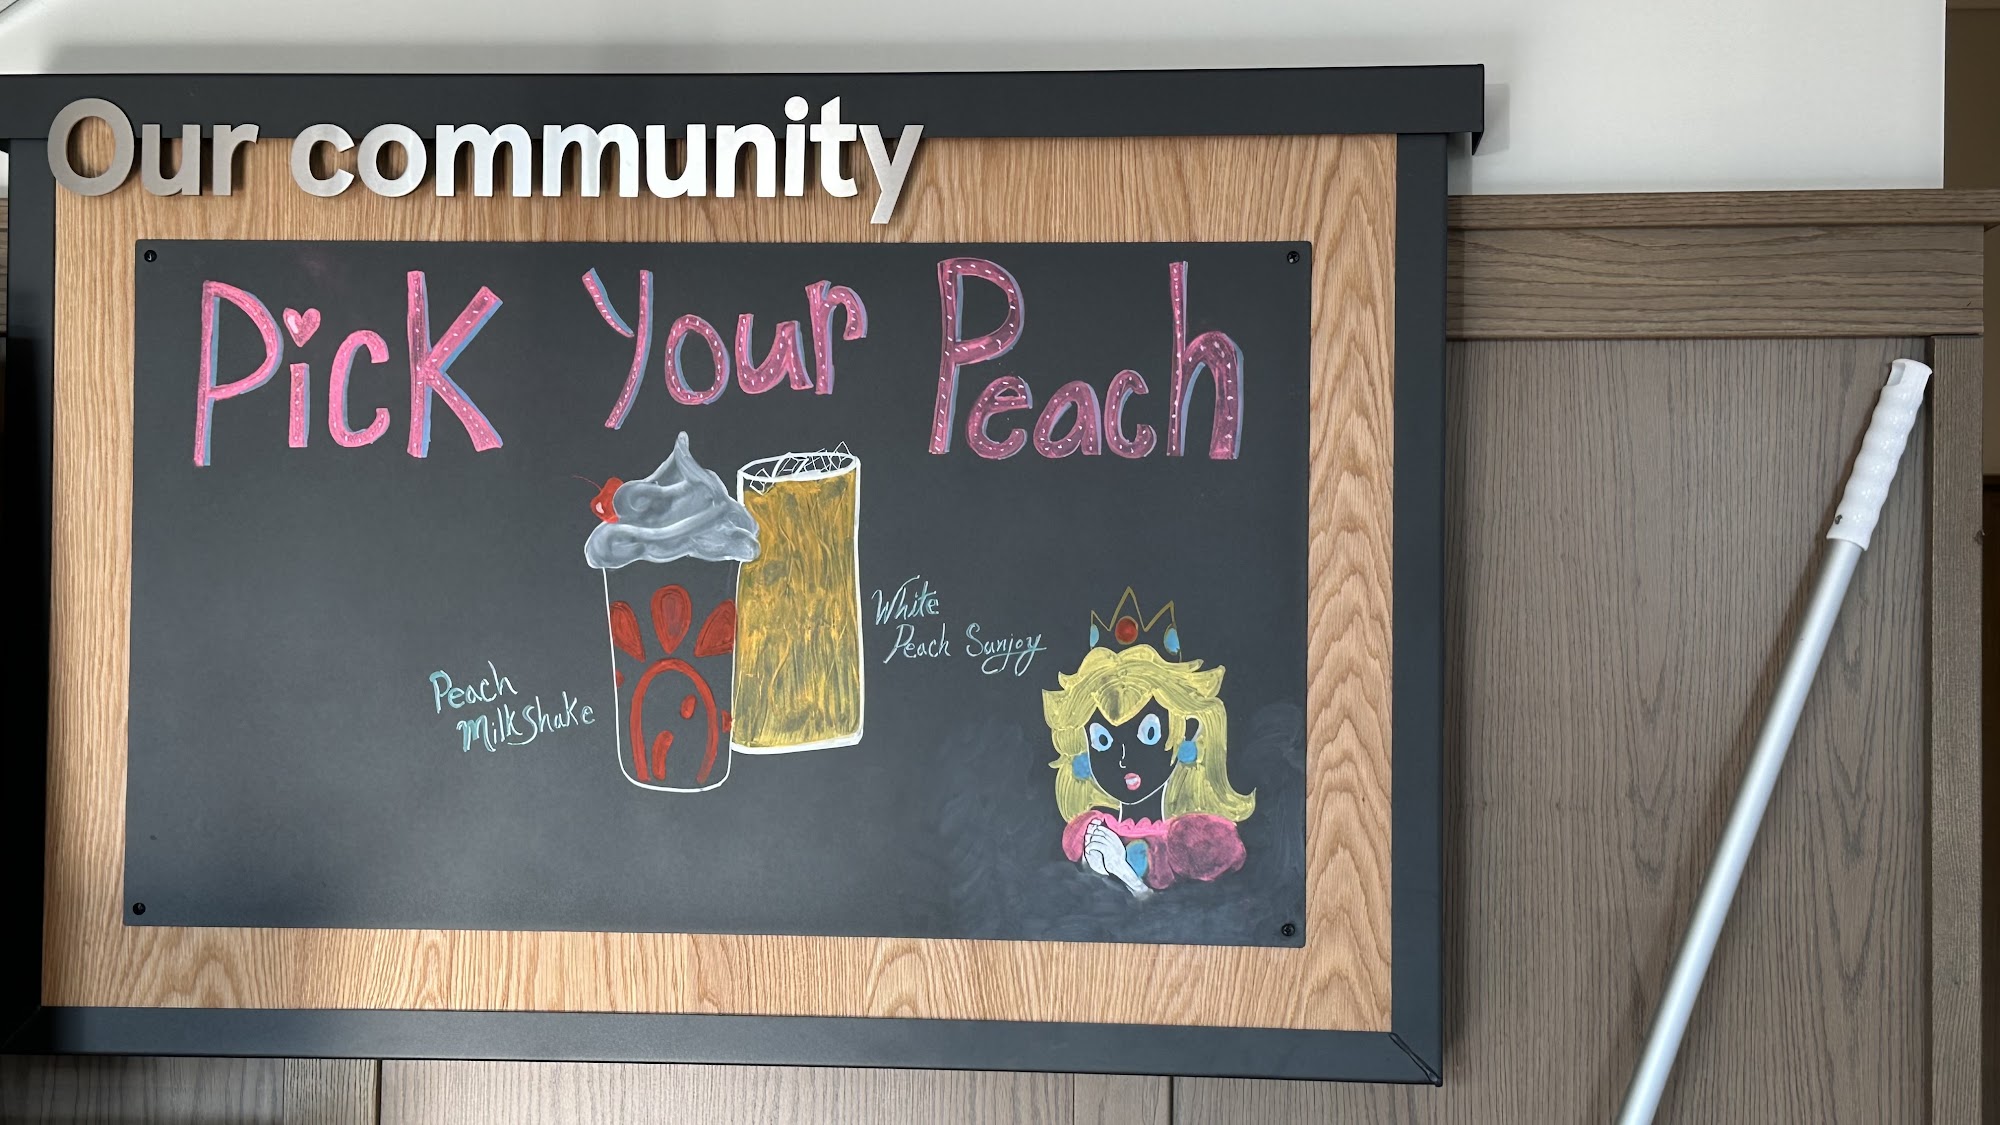 Our community
Pick Your Peach
White
Peach Sunjoy
Peach
Milkshake